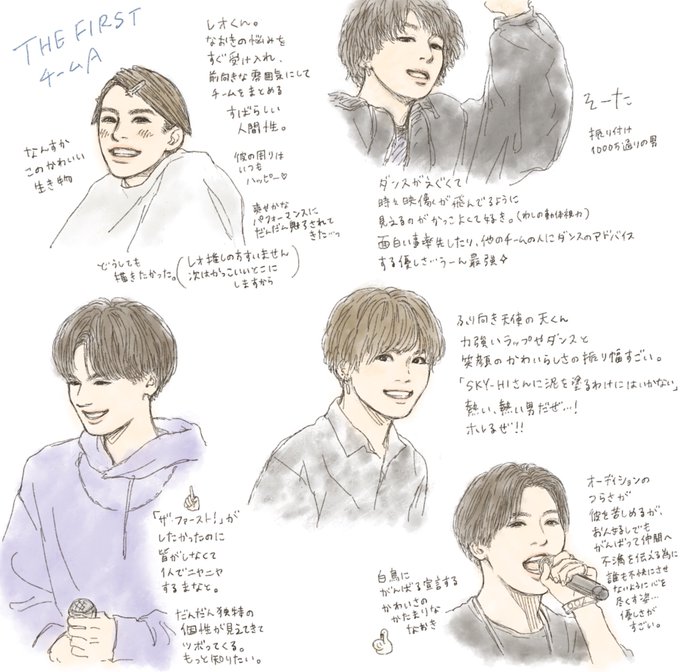 THE FIRST
チームA
レオくん。
なおきの悩みを
すぐ受け入れ、
前向きな雰囲気にして
チームをまとめる
すばらしい
人間性。
彼の周りは
いつも
ハッピー♡
爽やかな
パフォーマンスに
だんだん魅了されて
きた…っ
なんすか
このかわいい
生き物
どうしても
描きたかった。
(レオ推しの方すいません
次はかっこいいとこに
しますから)
そーた
振り付け
1000万通りの男
ダンスがえぐくて
時々映像が飛んでるように
見えるのがかっこよくて好き。(わしの動体視力)
面白い事発生したり、他のチームの人にダンスのアドバイス
する優しさ…うーん最強✧
ふり向き天使の天くん
力強いラップやダンスと
笑顔のかわいらしさの振り幅すごい。
「SKY-HIさんに泥を塗るわけにはいかない」
熱い、熱い男だぜ…!
ホレるぜ!!
「ザ・ファースト!」が
したかったのに
皆がしなくて
1人でニヤニヤ
するまなと。
だんだん独特の
個性が見えてきて
ツボってくる。
もっと知りたい。
白鳥に
がんばる宣言する
かわいさの
かたまりな
なおき
オーディションの
つらさが
彼を苦しめるが、
がんばって仲間へ
不満を伝える為に
誰も不快にさせ
ないように心を
尽くす姿…
優しさが
すごい。